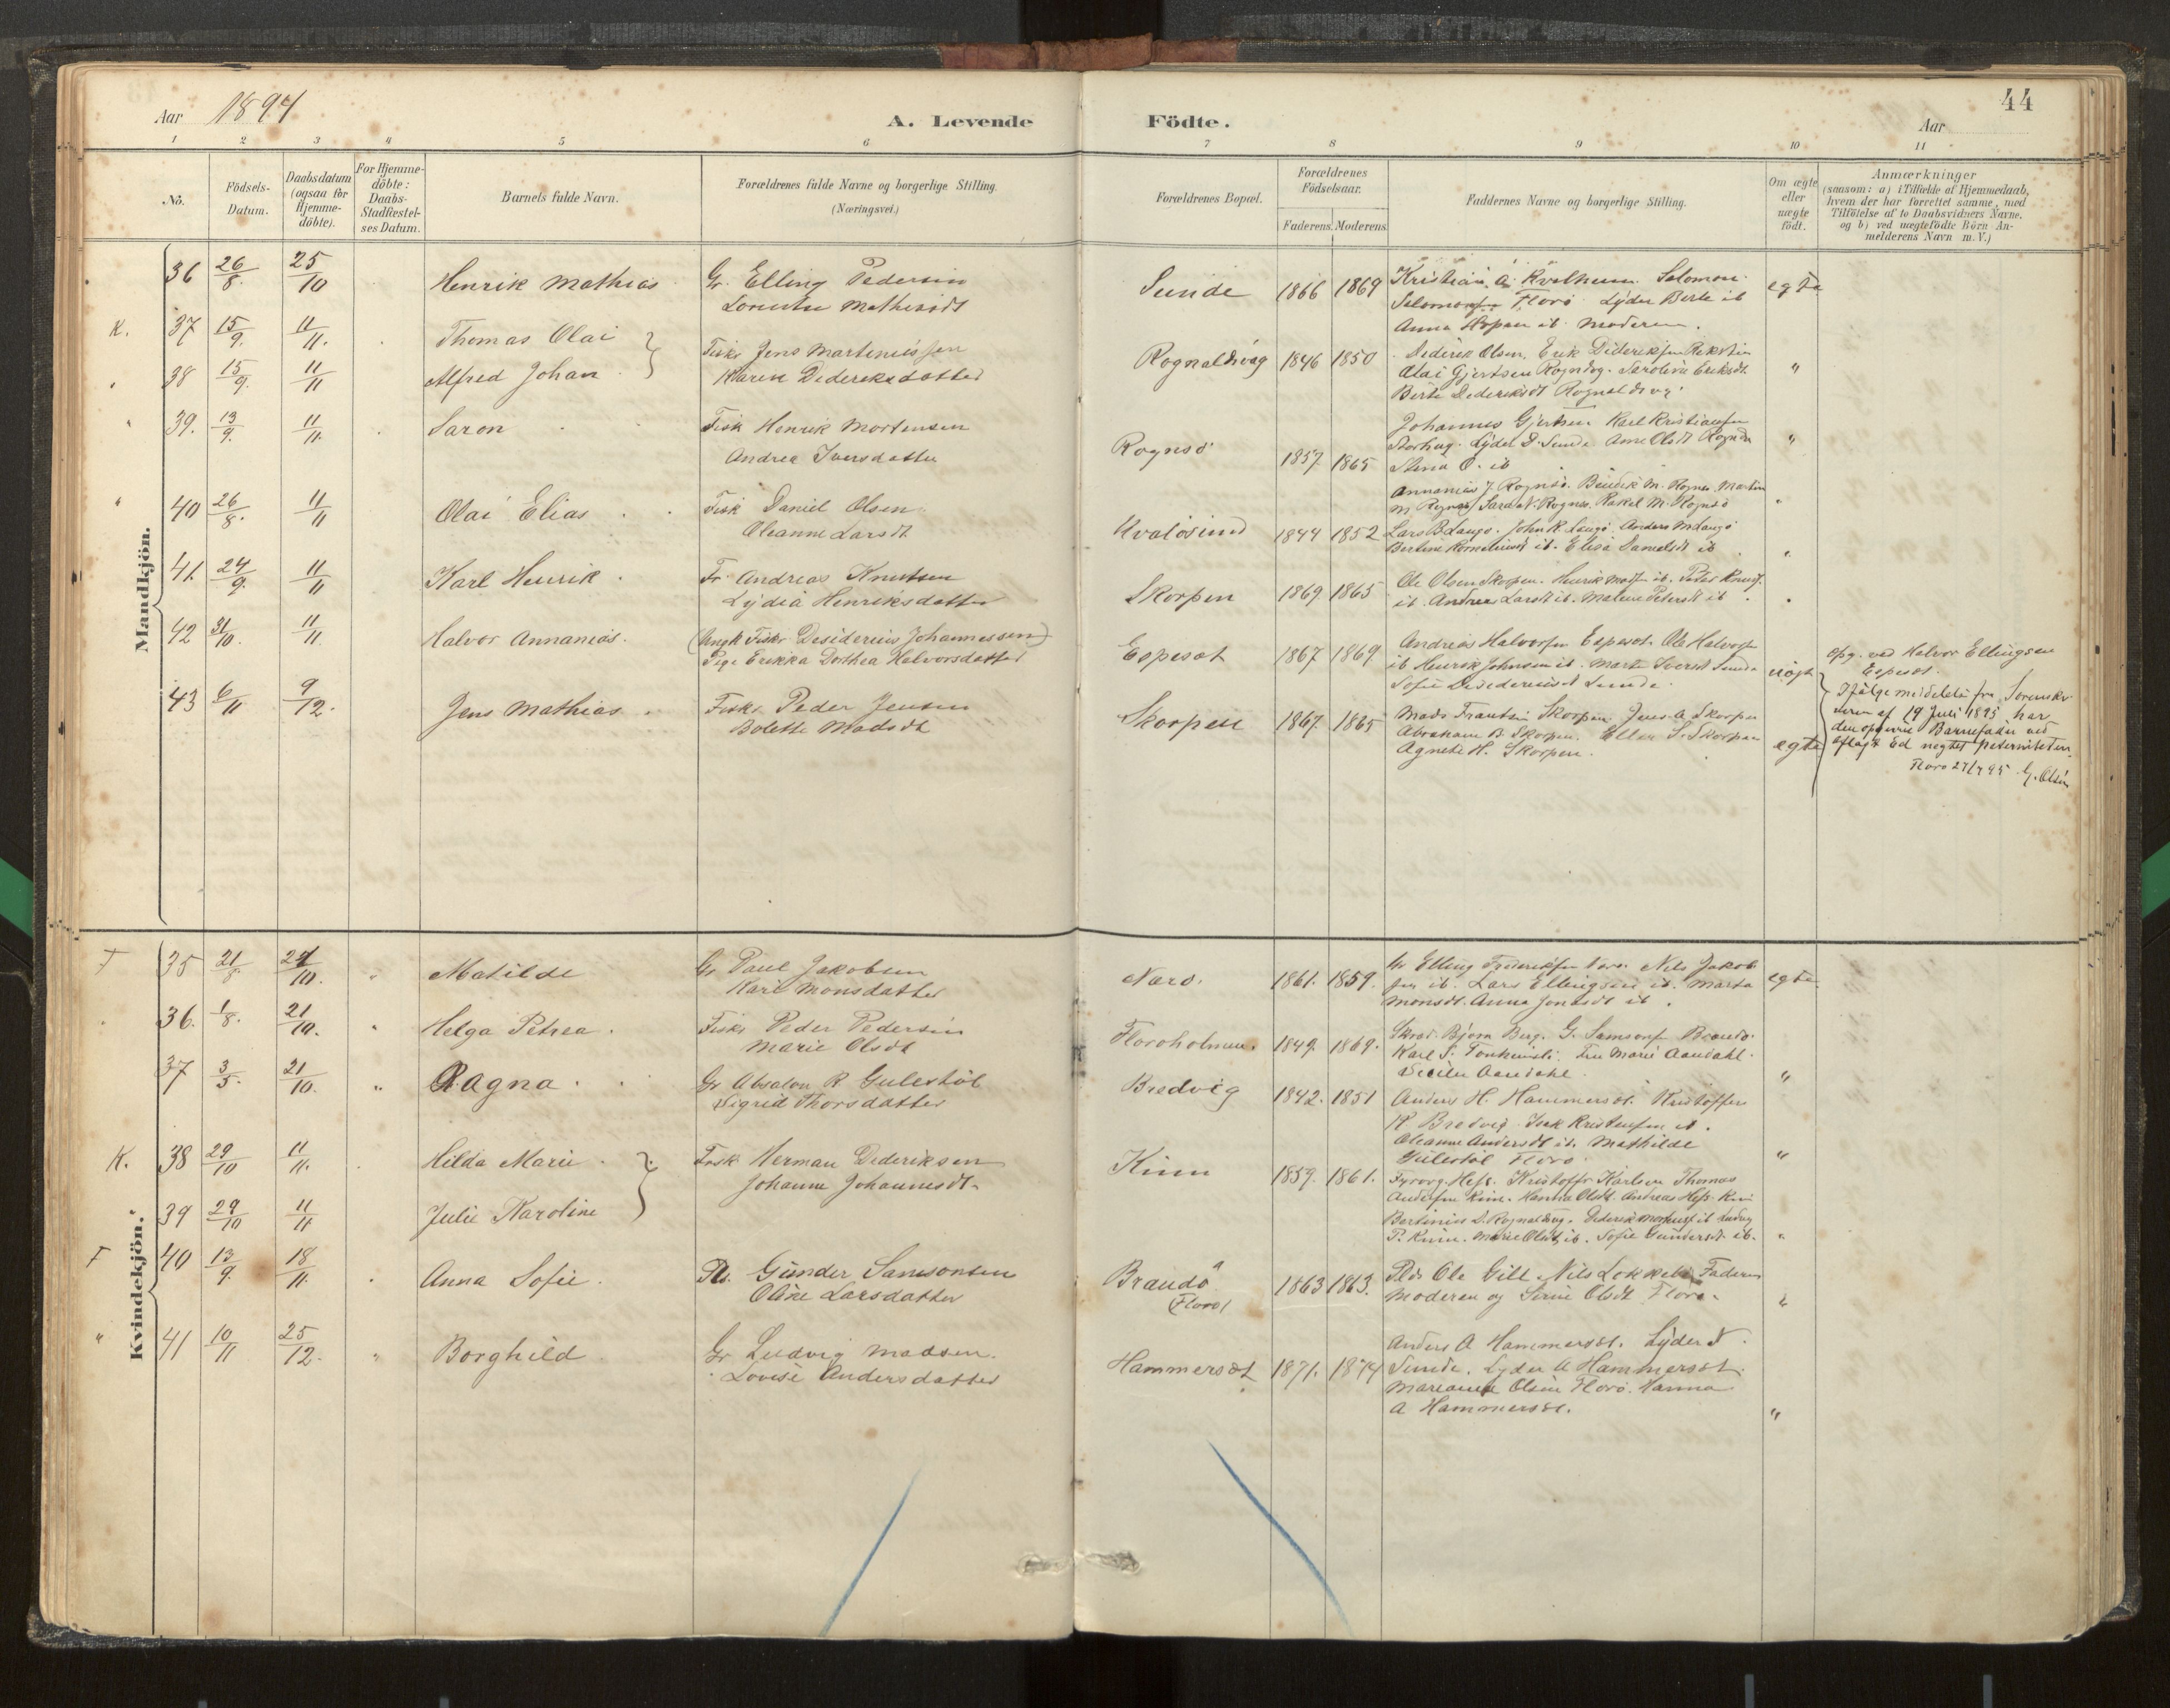 Aar 1894
A. Levende Födte.
44
Aar
1 2 3 4 5 6 7 8 9 10 11
No.
Födsels-Datum.
Daabsdatum (ogsaa for Hjemme-döbte).
For Hjemme-döbte: Daabs-Stadfæstel-ses Datum.
Barnets fulde Navn.
Forældrenes fulde Navne og borgerlige Stilling.
(Næringsvei.)
Forældrenes Bopæl.
Forældrenes Födselsaar.
Faderens. Moderens.
Faddernes Navne og borgerlige Stilling.
Om ægte eller uægte födt.
Anmærkninger
(saasom: a) i Tilfælde af Hjemmedaab,
hvem der har forrettet samme, med
Tilföielse af to Daabsvidners Navne,
og b) ved uægtefödte Börn An-
melderens Navn m. V.)
Mandkjön.
36 26/8. 25/10 Henrik Mathias Gr. Elling Pedersen
Sunde 1866 1869 Kristian A. Kvelhum Salomon
Salomons. Florö. Lyder Berte ib
Anna ib. Moderen.
egte
K. 37 15/9. 11/11. Thomas Olai
38 15/9. 11/11 Alfred Johan
Fisker Jens Martinussen
Karen Dideriksdatter
Rognaldsvag 1846 1850 Diderik Olsen, Erik Dideriksen Rekstin
Olai Gjertsen Rogndvg. Eriksdt.
Berte Dederiksdt Rognaldsvg. "
39. 13/9. 11/11. Saron Fisk Henrik Mortensen
Andrea Iversdatter
Rognsö 1857. 1865 Johannes Gjertsen Karl Kristiansen
Storhug. Lyder D. Sunde Ane Olsdt
Stina O. ib "
40 26/8. 11/11 Olai Elias Fisk Daniel Olsen
Oleanne Larsdt
Kvalösund 1844 1852 Annanias J. Rognsö. M. Rognsö. Martin
M. Rognsö Sara N. Rognsö. Rakel M. Rognsö
Lars B Langö. John R. Langö Anders M Langö
ib. Elisa Danielsdt ib "
41. 24/9. 11/11 Karl Henrik Fr. Andreas Knutsen
Lydia Henriksdatter
Skorpen 1869 1865 Ole Olsen Skorpen. Henrik ib. Peder Knuds.
ib. Andrea Larsdt ib. Malene Petersdt ib. "
42 31/10. 11/11. Halvor Annanias. (Ungk Fisker Desiderius Johannessen)
Pige Erikka Dorthea Halvorsdatter
Espeset 1867 1869 Andreas Halvorsen Espeset. Ole Halvorsen
ib Henrik Johnsen ib. Marta Sunde
Sofie Desideriusdt Sunde. uægte
Opg. ved Halvor Ellingsen
Espeset.
Ifölge meddelelse fra Sorenskri-
veren af 19 Juli 1895 har
den opgivne Barnefader ved
aflagt Ed negtet paterniteten.
Florö 27/7 95. G. Olsen
43 6/11 9/12. Jens Mathias Fisker Peder Jensen
Bolette Madsdt
Skorpen 1867. 1865 Mads Frantsen Skorpen. Jens A Skorpen
Abraham B. Skorpen. Ellen S. Skorpen
Agnete H. Skorpen. egte
Kvindekjön.
F 35 21/8 21/10. Matilde Gr Paul Jakobsen
Kari Monsdatter
Narö. 1861. 1859. Gr Elling Frederiksen Narö. Nils Jakob
sen ib. Lars Ellingsen ib. Marta
Monsdt. Anna Jonsdt ib. egte
36. 1/8. 21/10. Helga Petrea Fisker Peder Pedersen
Marie Olsdt
Floroholmen. 1849. 1869. Skrad. Bjorn Berg. G. Samsons Brandö
Karl S. Fru Marie Aandahl.
Aandahl. "
37 3/5. 21/10. Ragna Gr Absalon R Gulestöl
Sigrid Thorsdatter
Bredvig 1842. 1851 Anders H. Hammerset. Kristoffer
K Bredvig. Isak Kristensen ib.
Oleanne Andersdt ib. Mathilde
Gulestöl Florö. "
K. 38 29/10 11/11. Hilda Marie
39 29/10 11/11 Julie Karoline
Fisk Herman Dideriksen
Johanne Johannesdt.
Kinn 1859. 1861. Fyrvog. Hess. Kristoffer Karlsen Thomas
Andersen Kinn. Hanna Olsdt. Andreas Hess. Kinn
Bertinius D. Rognaldsvg. Diderik ib Ludvig
P. Kinn. Marie Olsdt ib. Sofie Gundersdt. ib. "
F 40 13/9. 18/11. Anna Sofie Pls. Gunder Samsonsen
Oline Larsdatter
Brandö
(Florö)
1863 1863. Pls Ole Gill Nils Lokkeb. Faderen
Moderen og Serine Olsdt Florö. "
" 41 10/11 25/12. Borghild Gr Ludvig Madsen.
Lovise Andersdatter
Hammerset 1871. 1874 Anders A Hammerset. Lyder
Sunde. Lyder A Hammerset.
Marianne Olsen Florö. Hanna
A Hammerset. "